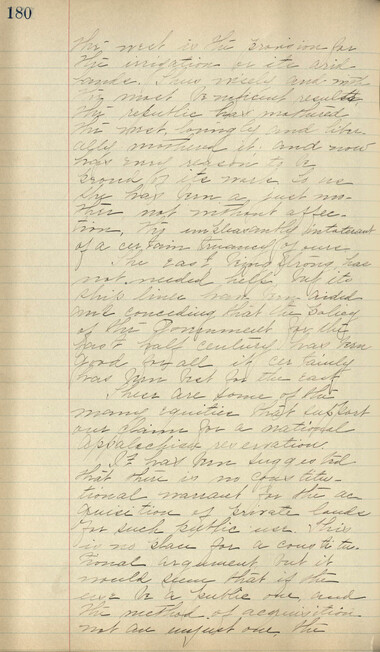 180
the west is the provision for
the irrigation of its arid
lands. Thus wisely and with
the most beneficent results
the republic has mothered
the west, lovingly and libe
rally mothered it. and now
has every reason to be
proud of its ward. To us
she has been a just mo-
ther not without affec-
tion, tho unpleasantly intolerant
of a certain truancy of ours.
The east being strong, has
not needed help but its
ship lines have been aided
and conceding that the policy
of the Government for the
past half century has been
good for all it certainly
has been best for the east
These are some of the
many equities that support
our claim for a national
Appalachian reservation.
It has been suggested
that there is no constitu-
tional warrant for the ac
quisition of private lands
for such public use. This
is no place for a constitu-
tional argument, but it
would seem that if the
use be a public one and
the method of acquisition
not an unjust one the